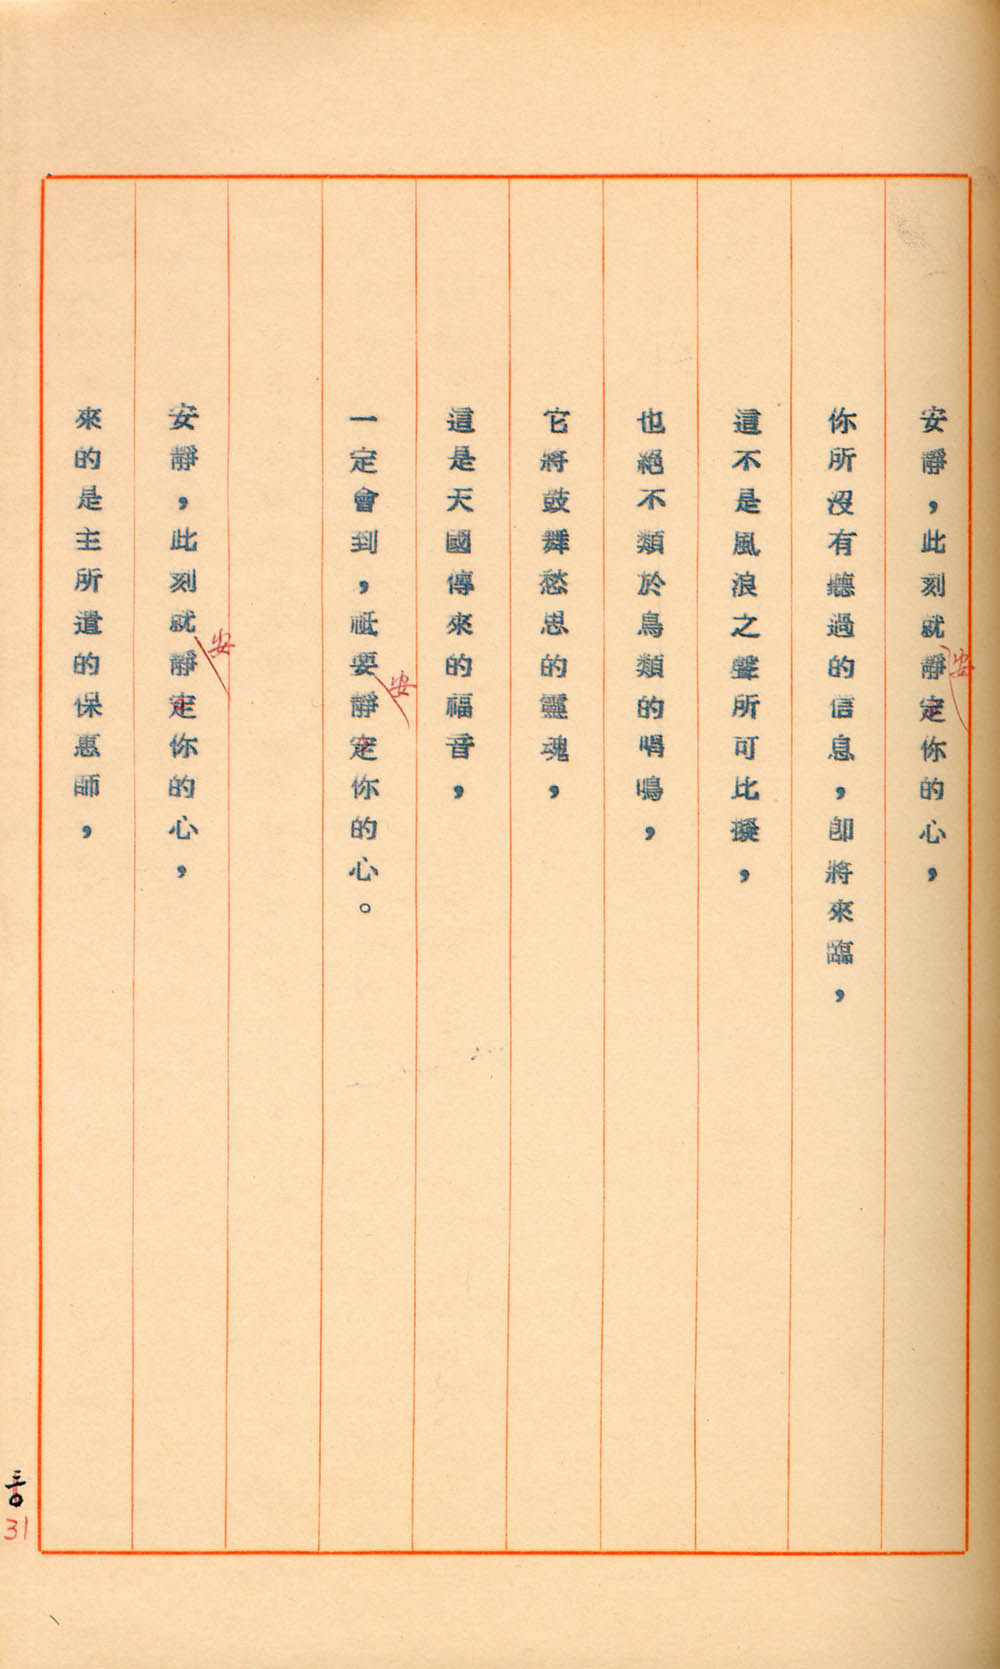 安靜，此刻就靜定你的心，
安
你所沒有聽過的信息，卽將來臨，
這不是風浪之聲所可比擬，
也絕不類於鳥類的唱鳴，
它將鼓舞愁思的靈魂，
這是天國傳來的福音，
一定會到，祗要靜定你的心。
安
安靜，此刻就靜定你的心，
安
來的是主所遣的保惠師，
三十
31